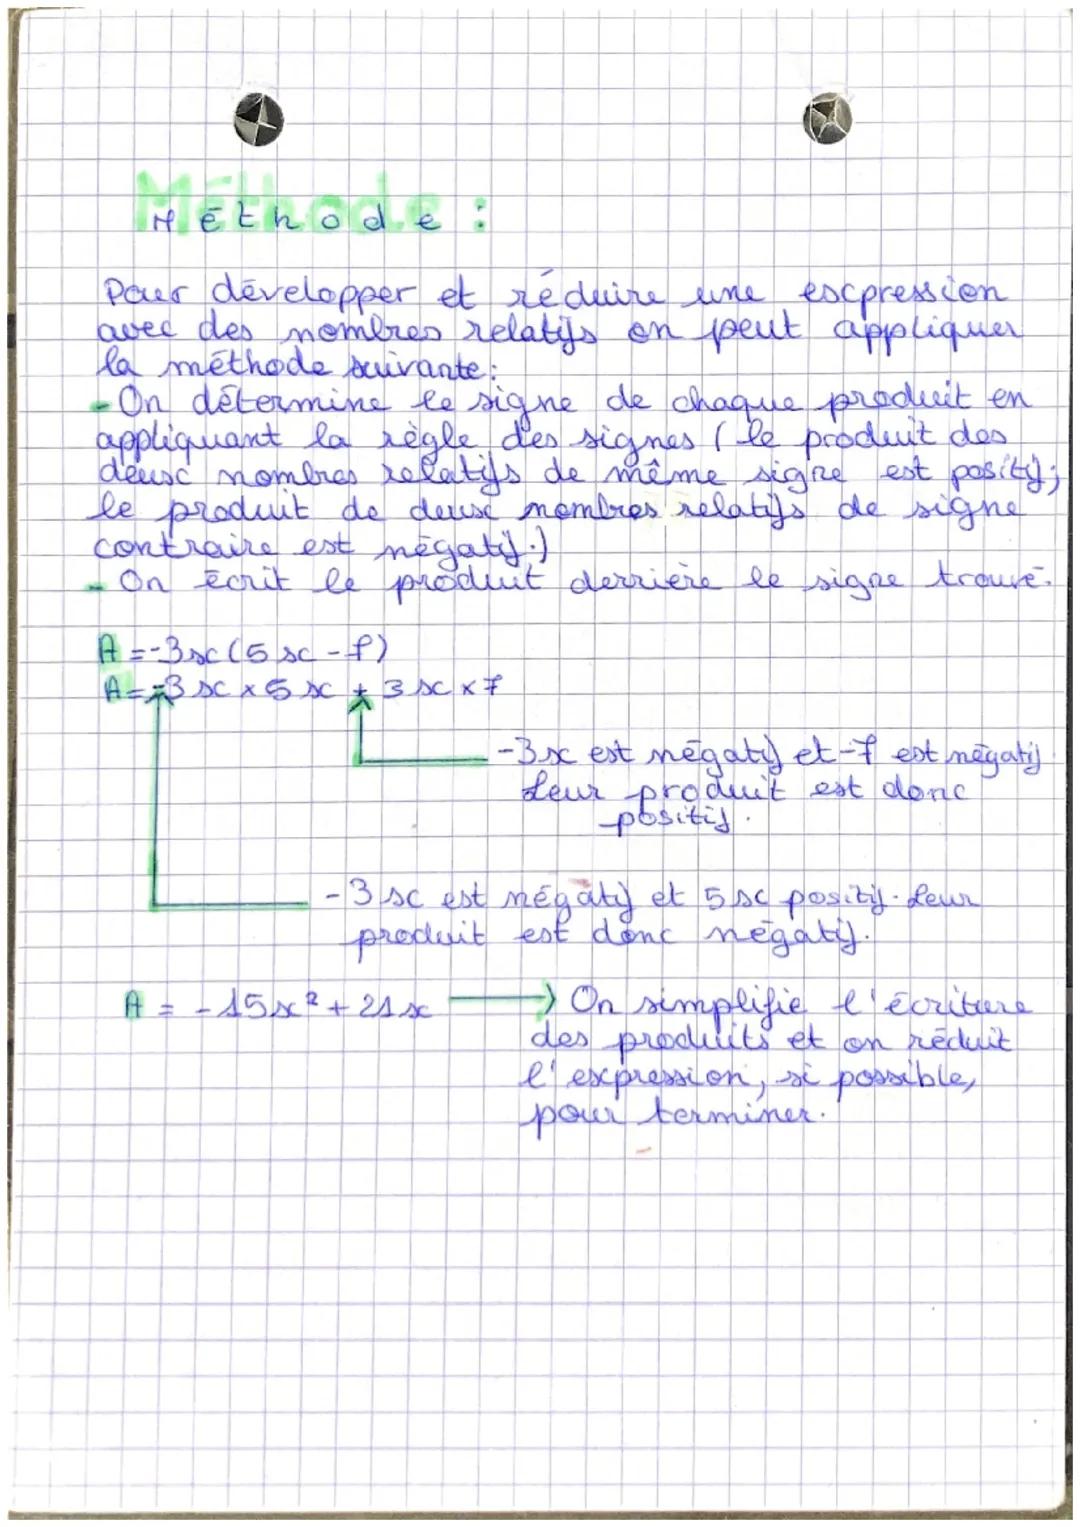 Méthode :
Pour développer et réduire une expression
avec des nombres relatifs on peut appliquer
la méthode suivante :
- On détermine le signe de chaque produit en
appliquant la règle des signes ( le produit des
deux nombres relatifs de même signe est positif ;
le produit de deux nombres relatifs de signe
contraire est négatif.)
- On écrit le produit derrière le signe trouvé.
A = -3x(5x - 7)
A = -3x × 5x + 3x × 7
-3x est négatif et -7 est négatif.
Leur produit est donc
positif.
-3x est négatif et 5x positif. Leur
produit est donc négatif.
A = -15x² + 21x → On simplifie l'écriture
des produits et on réduit
l'expression, si possible,
pour terminer.